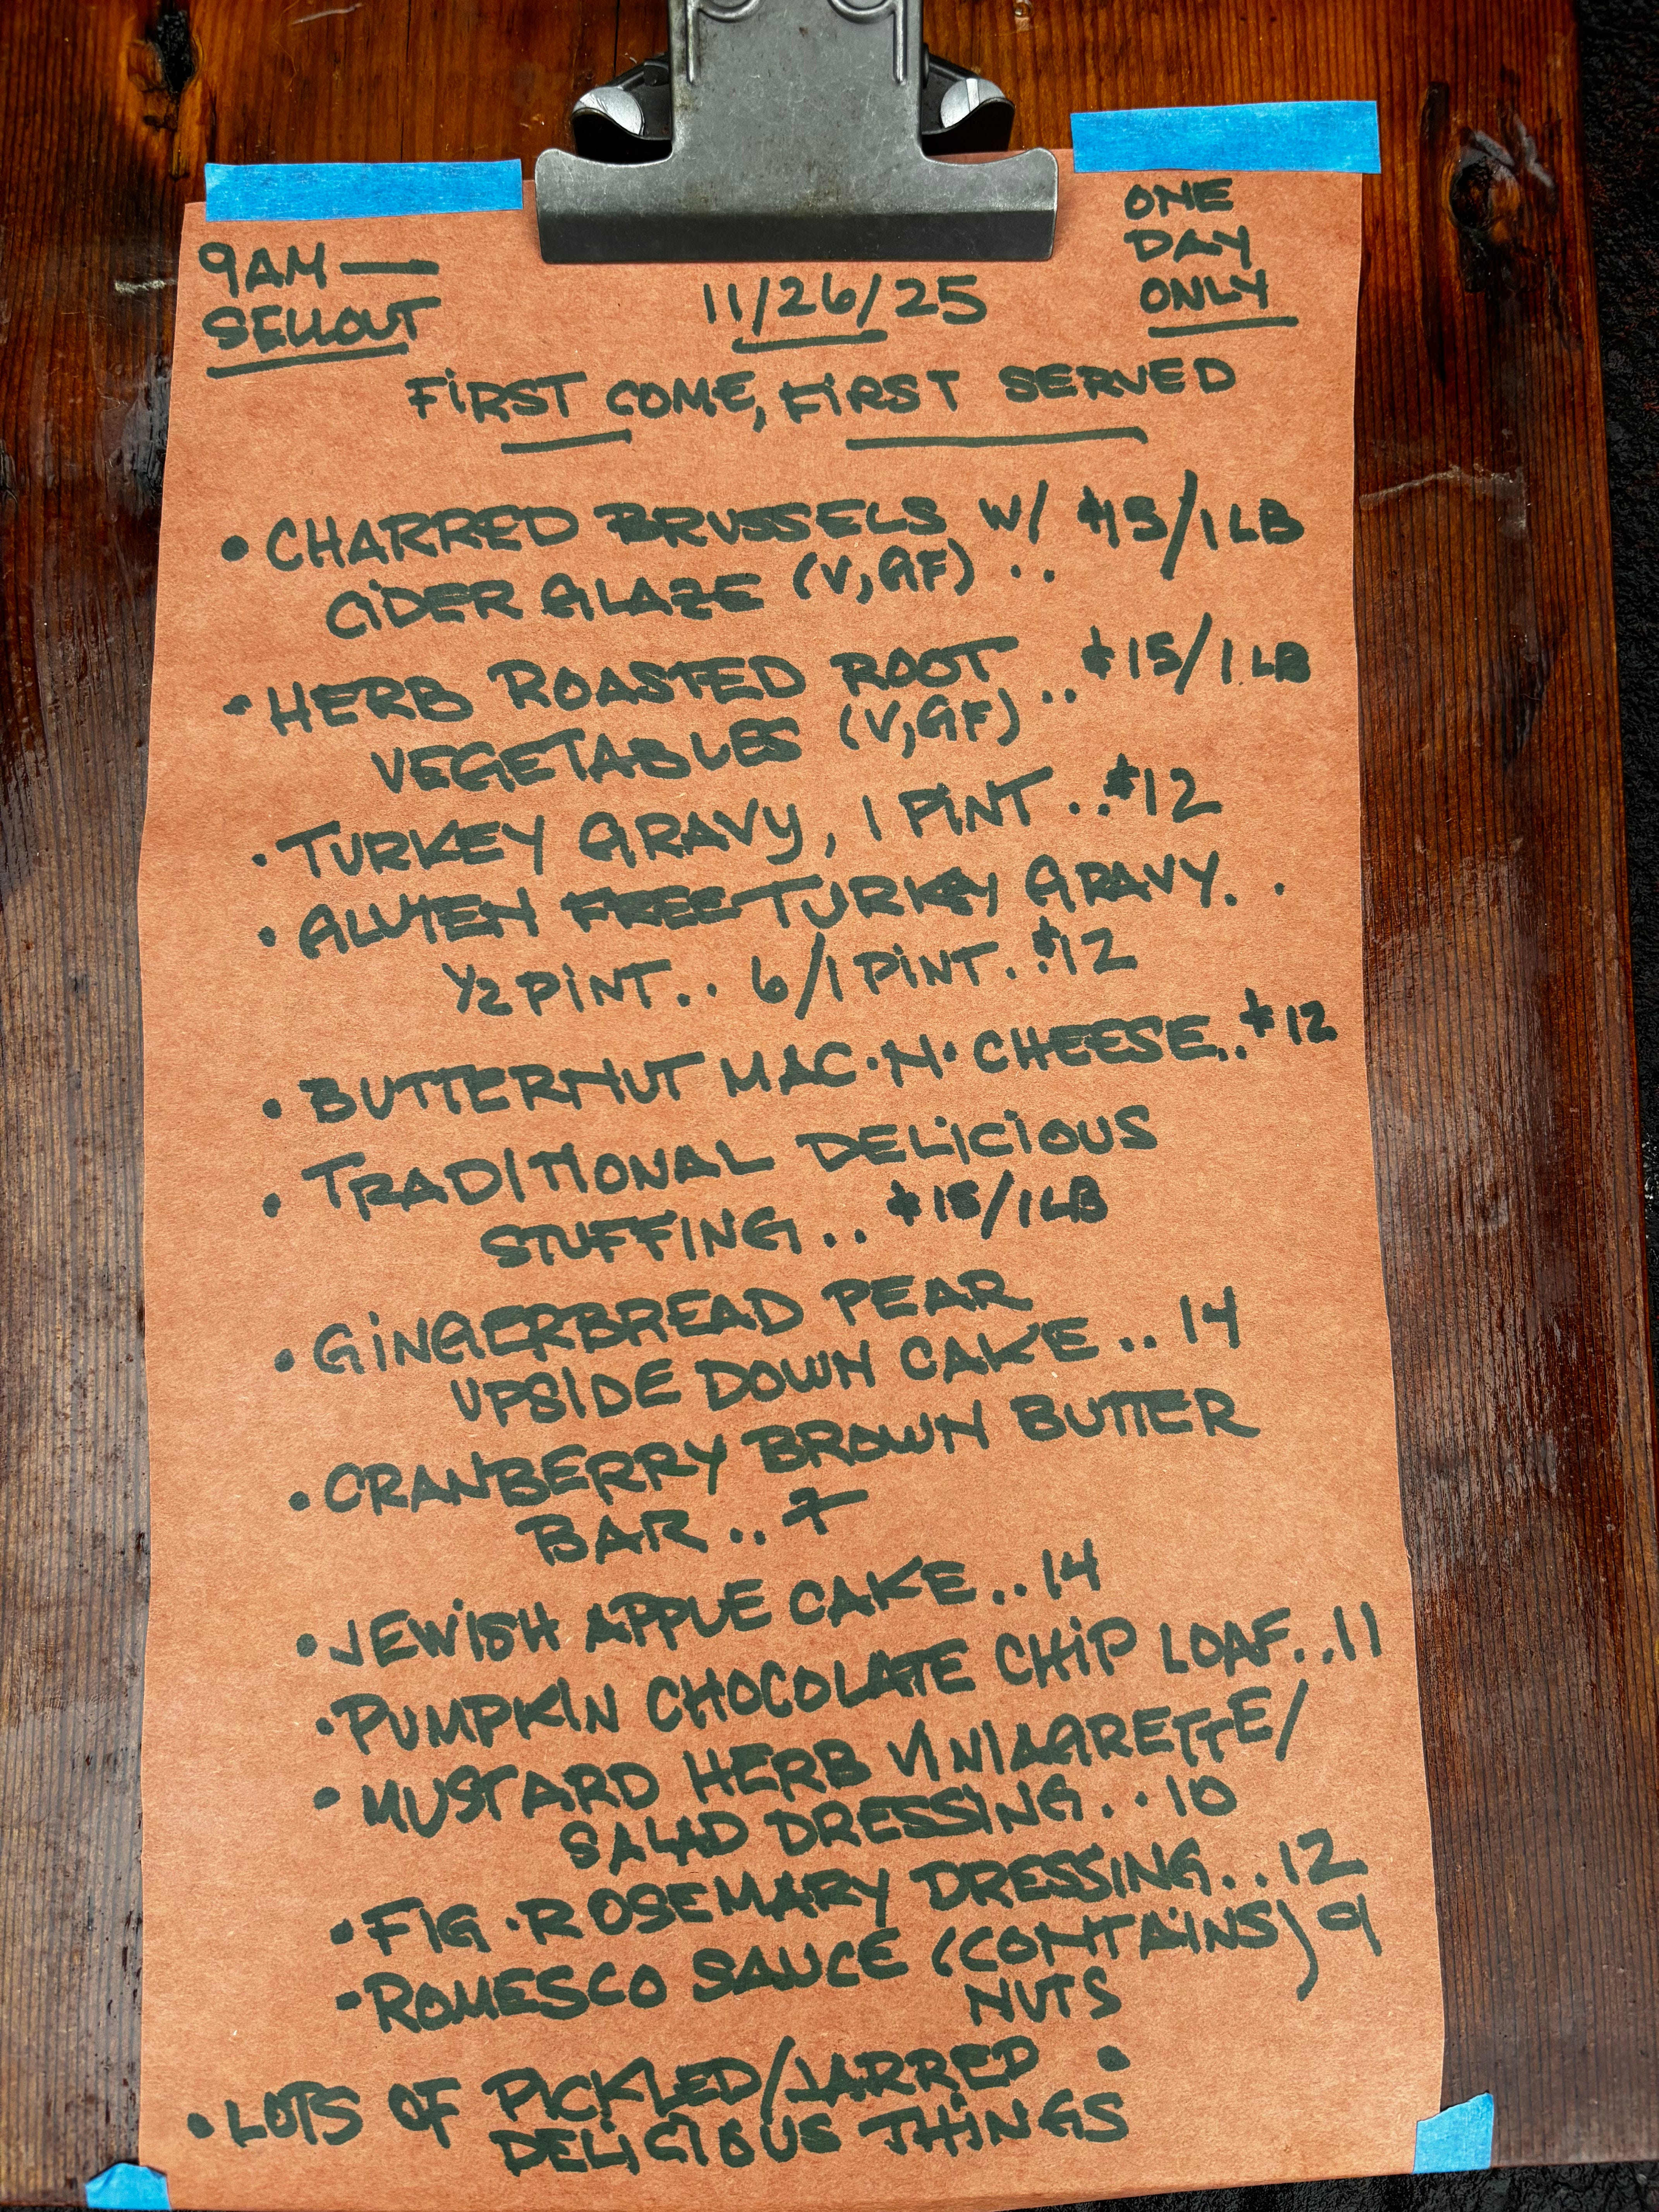 9AM —
SELLOUT
11/26/25
ONE
DAY
ONLY
FIRST COME, FIRST SERVED
• CHARRED BRUSSELS W/ $15/1 LB
CIDER GLAZE (V,GF) ..
• HERB ROASTED ROOT .. $15/1 LB
VEGETABLES (V,GF)
• TURKEY GRAVY, 1 PINT .. $12
• GLUTEN FREE TURKEY GRAVY..
1/2 PINT.. 6/1 PINT.. $12
• BUTTERNUT MAC·N·CHEESE.. $12
• TRADITIONAL DELICIOUS
STUFFING.. $15/1 LB
• GINGERBREAD PEAR
UPSIDE DOWN CAKE.. 14
• CRANBERRY BROWN BUTTER
BAR.. 7
• JEWISH APPLE CAKE.. 14
• PUMPKIN CHOCOLATE CHIP LOAF.. 11
• MUSTARD HERB VINIAGRETTE/
SALAD DRESSING.. 10
• FIG·ROSEMARY DRESSING.. 12
- ROMESCO SAUCE (CONTAINS) 9
NUTS
• LOTS OF PICKLED/JARRED •
DELICIOUS THINGS